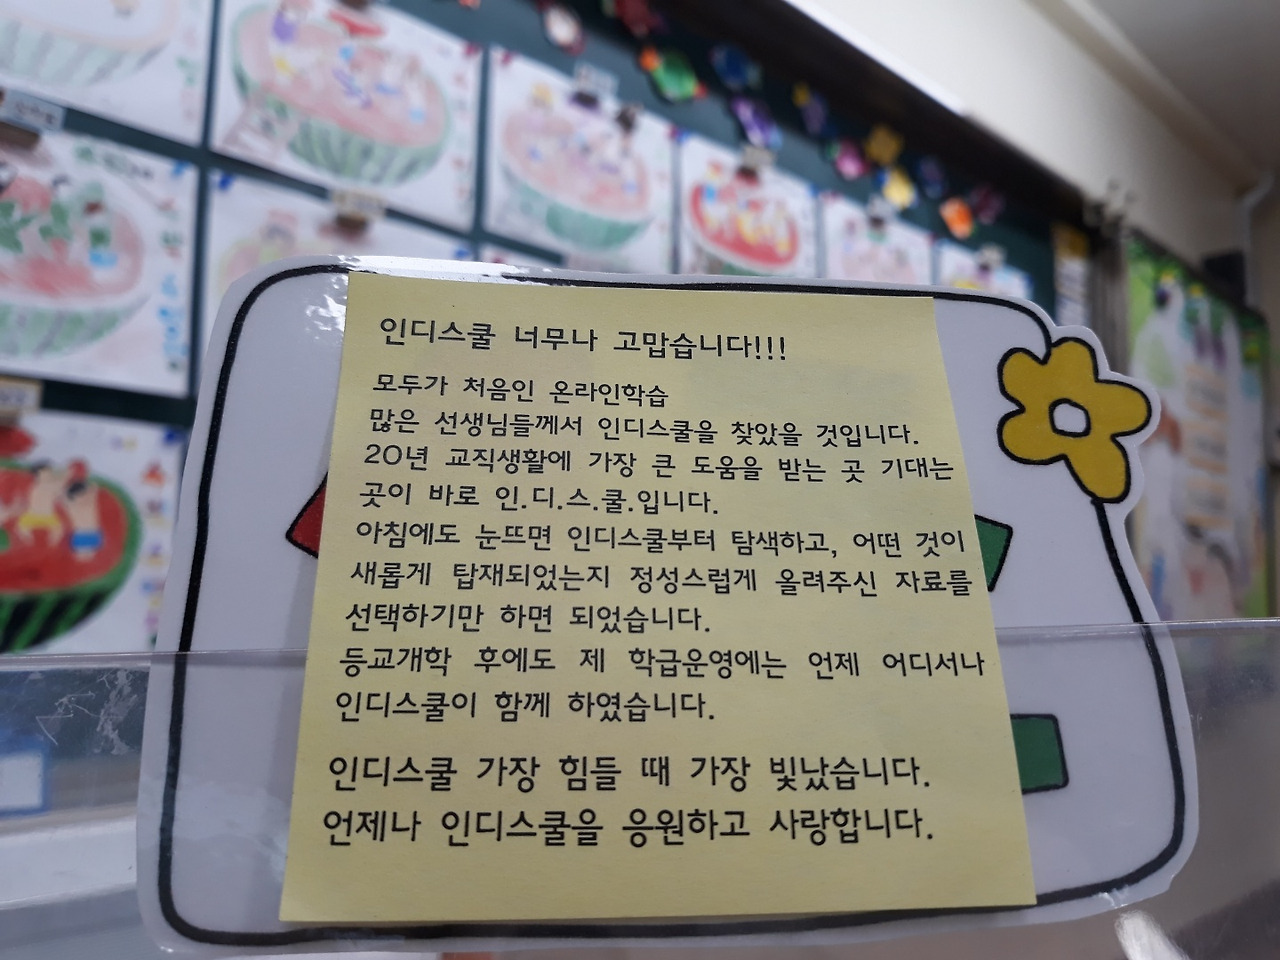 인디스쿨 너무나 고맙습니다!!!
모두가 처음인 온라인학습
많은 선생님들께서 인디스쿨을 찾았을 것입니다.
20년 교직생활에 가장 큰 도움을 받는 곳 기대는
곳이 바로 인.디.스.쿨.입니다.
아침에도 눈뜨면 인디스쿨부터 탐색하고, 어떤 것이
새롭게 탑재되었는지 정성스럽게 올려주신 자료를
선택하기만 하면 되었습니다.
등교개학 후에도 제 학급운영에는 언제 어디서나
인디스쿨이 함께 하였습니다.
인디스쿨 가장 힘들 때 가장 빛났습니다.
언제나 인디스쿨을 응원하고 사랑합니다.